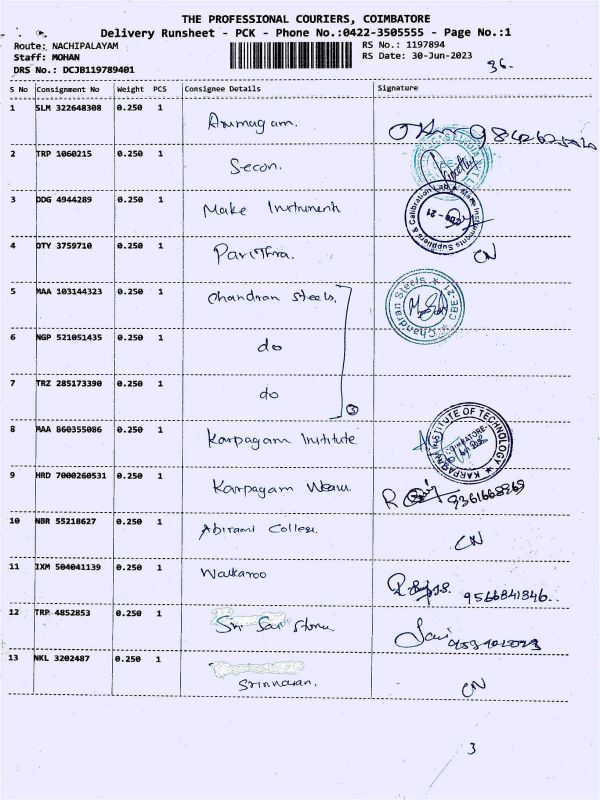 THE PROFESSIONAL COURIERS, COIMBATORE
Delivery Runsheet - PCK - Phone No.:0422-3505555 - Page No.:1
Route: NACHIPALAYAM RS No.: 1197894
Staff: MOHAN RS Date: 30-Jun-2023
36.
DRS No.: DCJB119789401
S No Consignment No Weight PCS Consignee Details Signature
1 SLM 322648308 0.250 1 Arumugam.
2 TRP 1060215 0.250 1 Secon.
3 DDG 4944289 0.250 1 Make Instruments
4 OTY 3759710 0.250 1 Pavithra. CN
5 MAA 103144323 0.250 1 Chandran Steels. Chandran Steels * CBE-21 *
6 NGP 521051435 0.250 1 do
7 TRZ 285173390 0.250 1 do
3
8 MAA 860355086 0.250 1 Karpagam Institute KARPAGAM INSTITUTE OF TECHNOLOGY * COIMBATORE-
9 HRD 7000260531 0.250 1 Karpagam 9361668969
10 NBR 55218627 0.250 1 Abirami College. CN
11 IXM 504041139 0.250 1 Walkaroo 9566841846.
12 TRP 4852853 0.250 1 Sri Sai Stores
13 NKL 3202487 0.250 1 CN
3